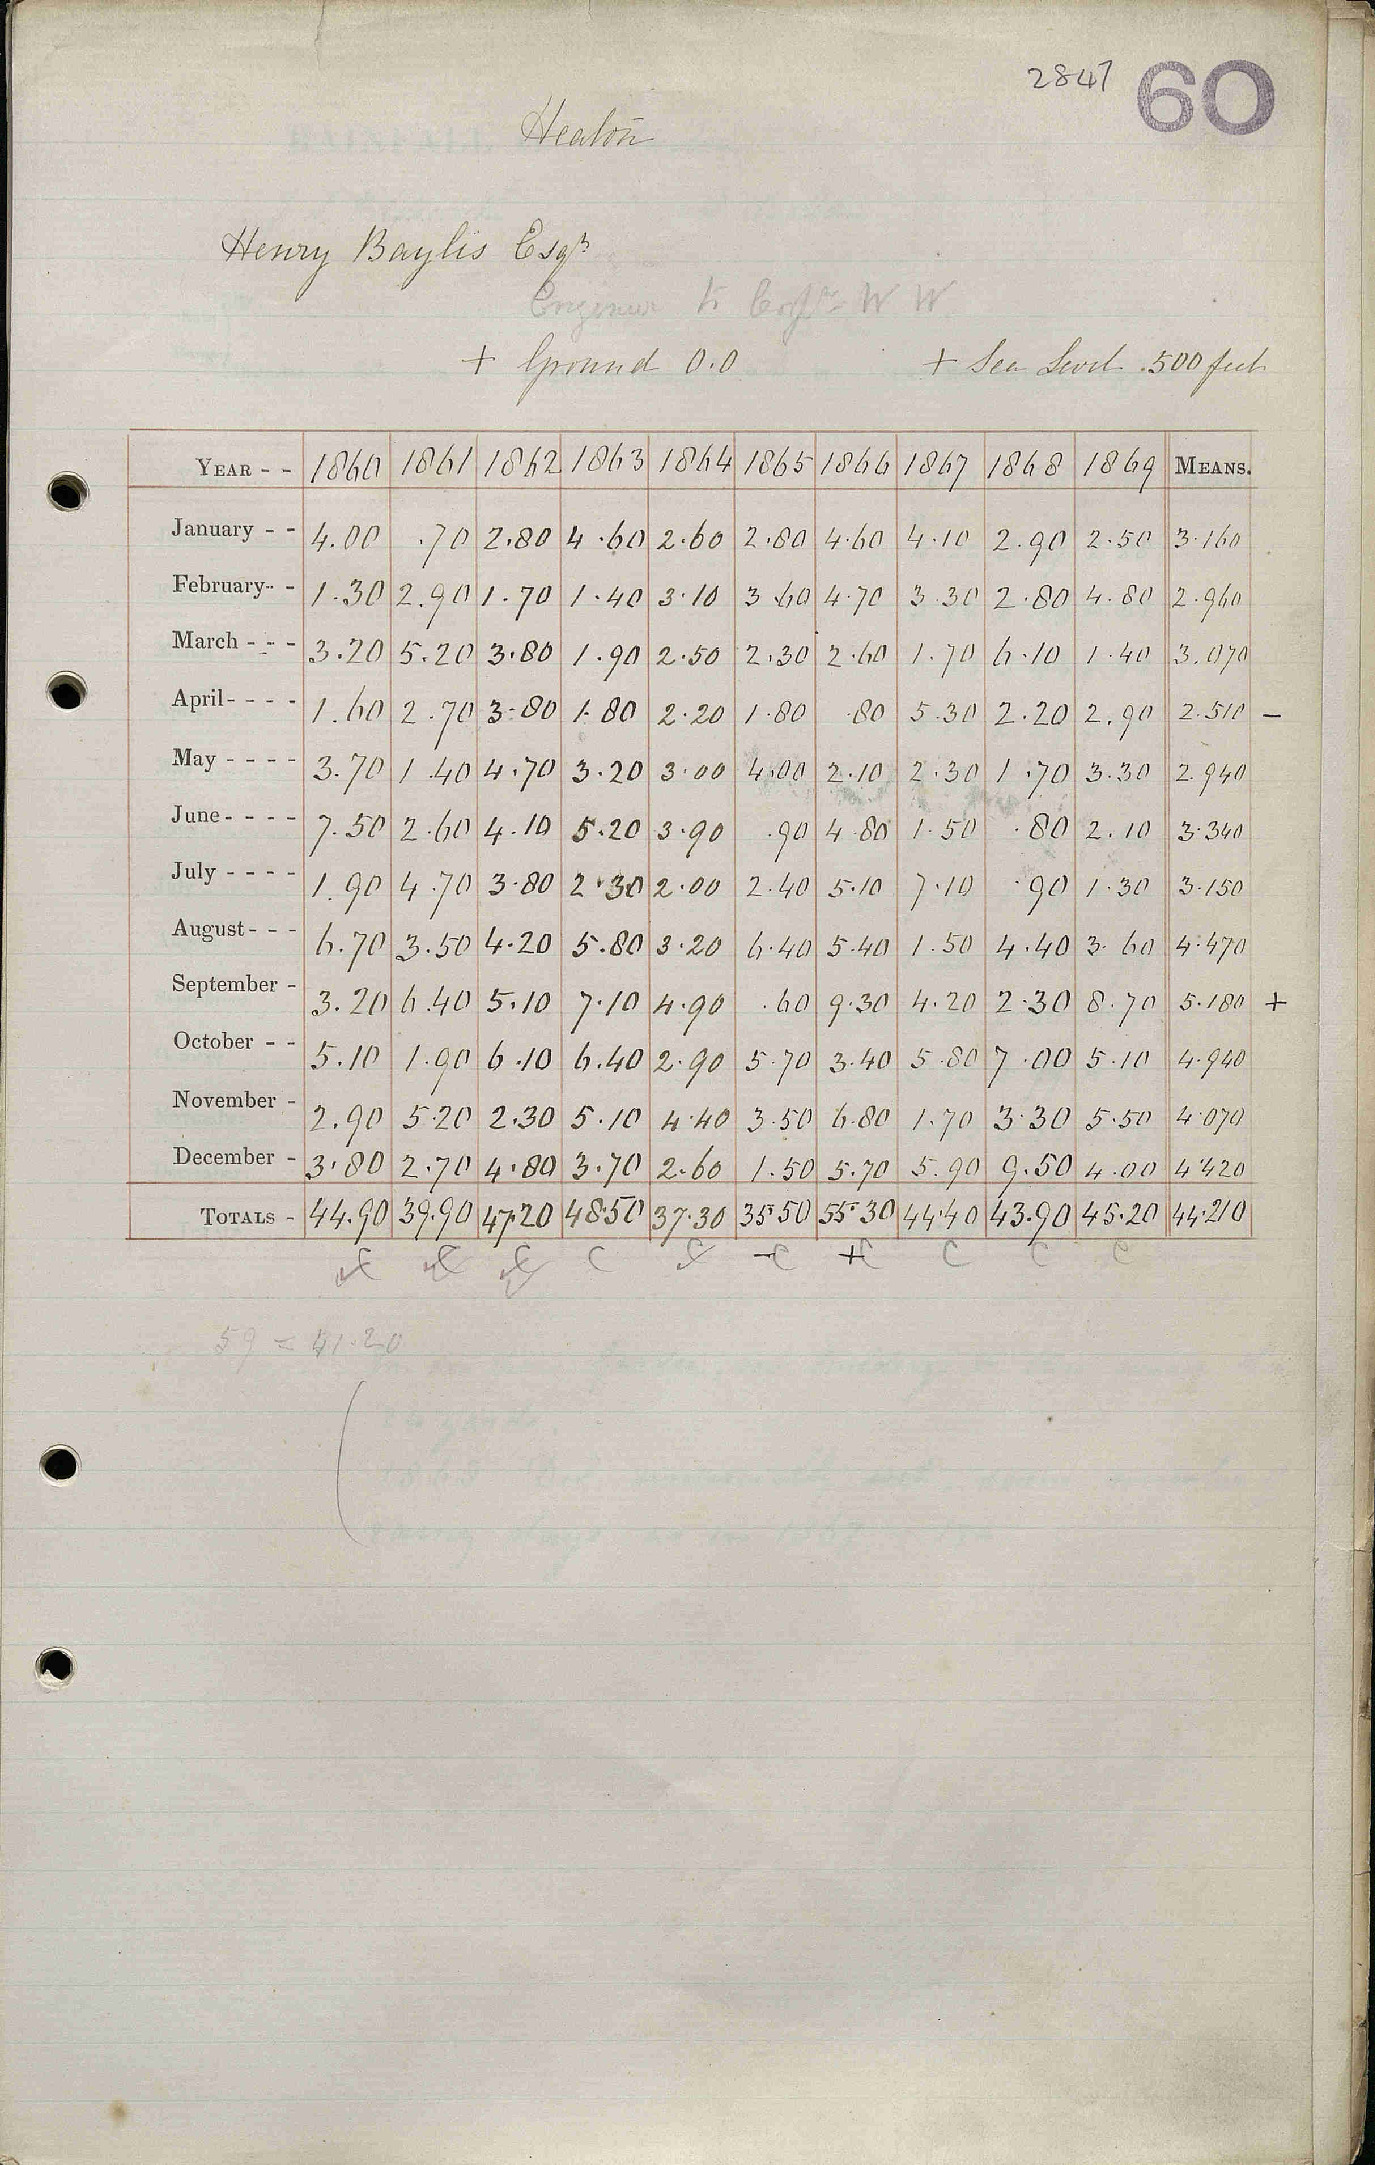 2847 60
Heaton
Henry Baylis Esqr
Engineer to Corp. W W
+ Ground 0.0 + Sea Level .500 feet
YEAR - - 1860 1861 1862 1863 1864 1865 1866 1867 1868 1869 MEANS.
January - - 4.00 .70 2.80 4.60 2.60 2.80 4.60 4.10 2.90 2.50 3.160
February- - 1.30 2.90 1.70 1.40 3.10 3.60 4.70 3.30 2.80 4.80 2.960
March - - - 3.20 5.20 3.80 1.90 2.50 2.30 2.60 1.70 6.10 1.40 3.070
April- - - - 1.60 2.70 3.80 1.80 2.20 1.80 .80 5.30 2.20 2.90 2.510 -
May - - - - 3.70 1.40 4.70 3.20 3.00 4.00 2.10 2.30 1.70 3.30 2.940
June- - - - 7.50 2.60 4.10 5.20 3.90 .90 4.80 1.50 .80 2.10 3.340
July - - - - 1.90 4.70 3.80 2.30 2.00 2.40 5.10 7.10 .90 1.30 3.150
August- - - 6.70 3.50 4.20 5.80 3.20 6.40 5.40 1.50 4.40 3.60 4.470
September - 3.20 6.40 5.10 7.10 4.90 .60 9.30 4.20 2.30 8.70 5.180 +
October - - 5.10 1.90 6.10 6.40 2.90 5.70 3.40 5.80 7.00 5.10 4.940
November - 2.90 5.20 2.30 5.10 4.40 3.50 6.80 1.70 3.30 5.50 4.070
December - 3.80 2.70 4.80 3.70 2.60 1.50 5.70 5.90 9.50 4.00 4.420
TOTALS - 44.90 39.90 47.20 48.50 37.30 35.50 55.30 44.40 43.90 45.20 44.210
C C C C C - C + C C C C
59 = 41.20